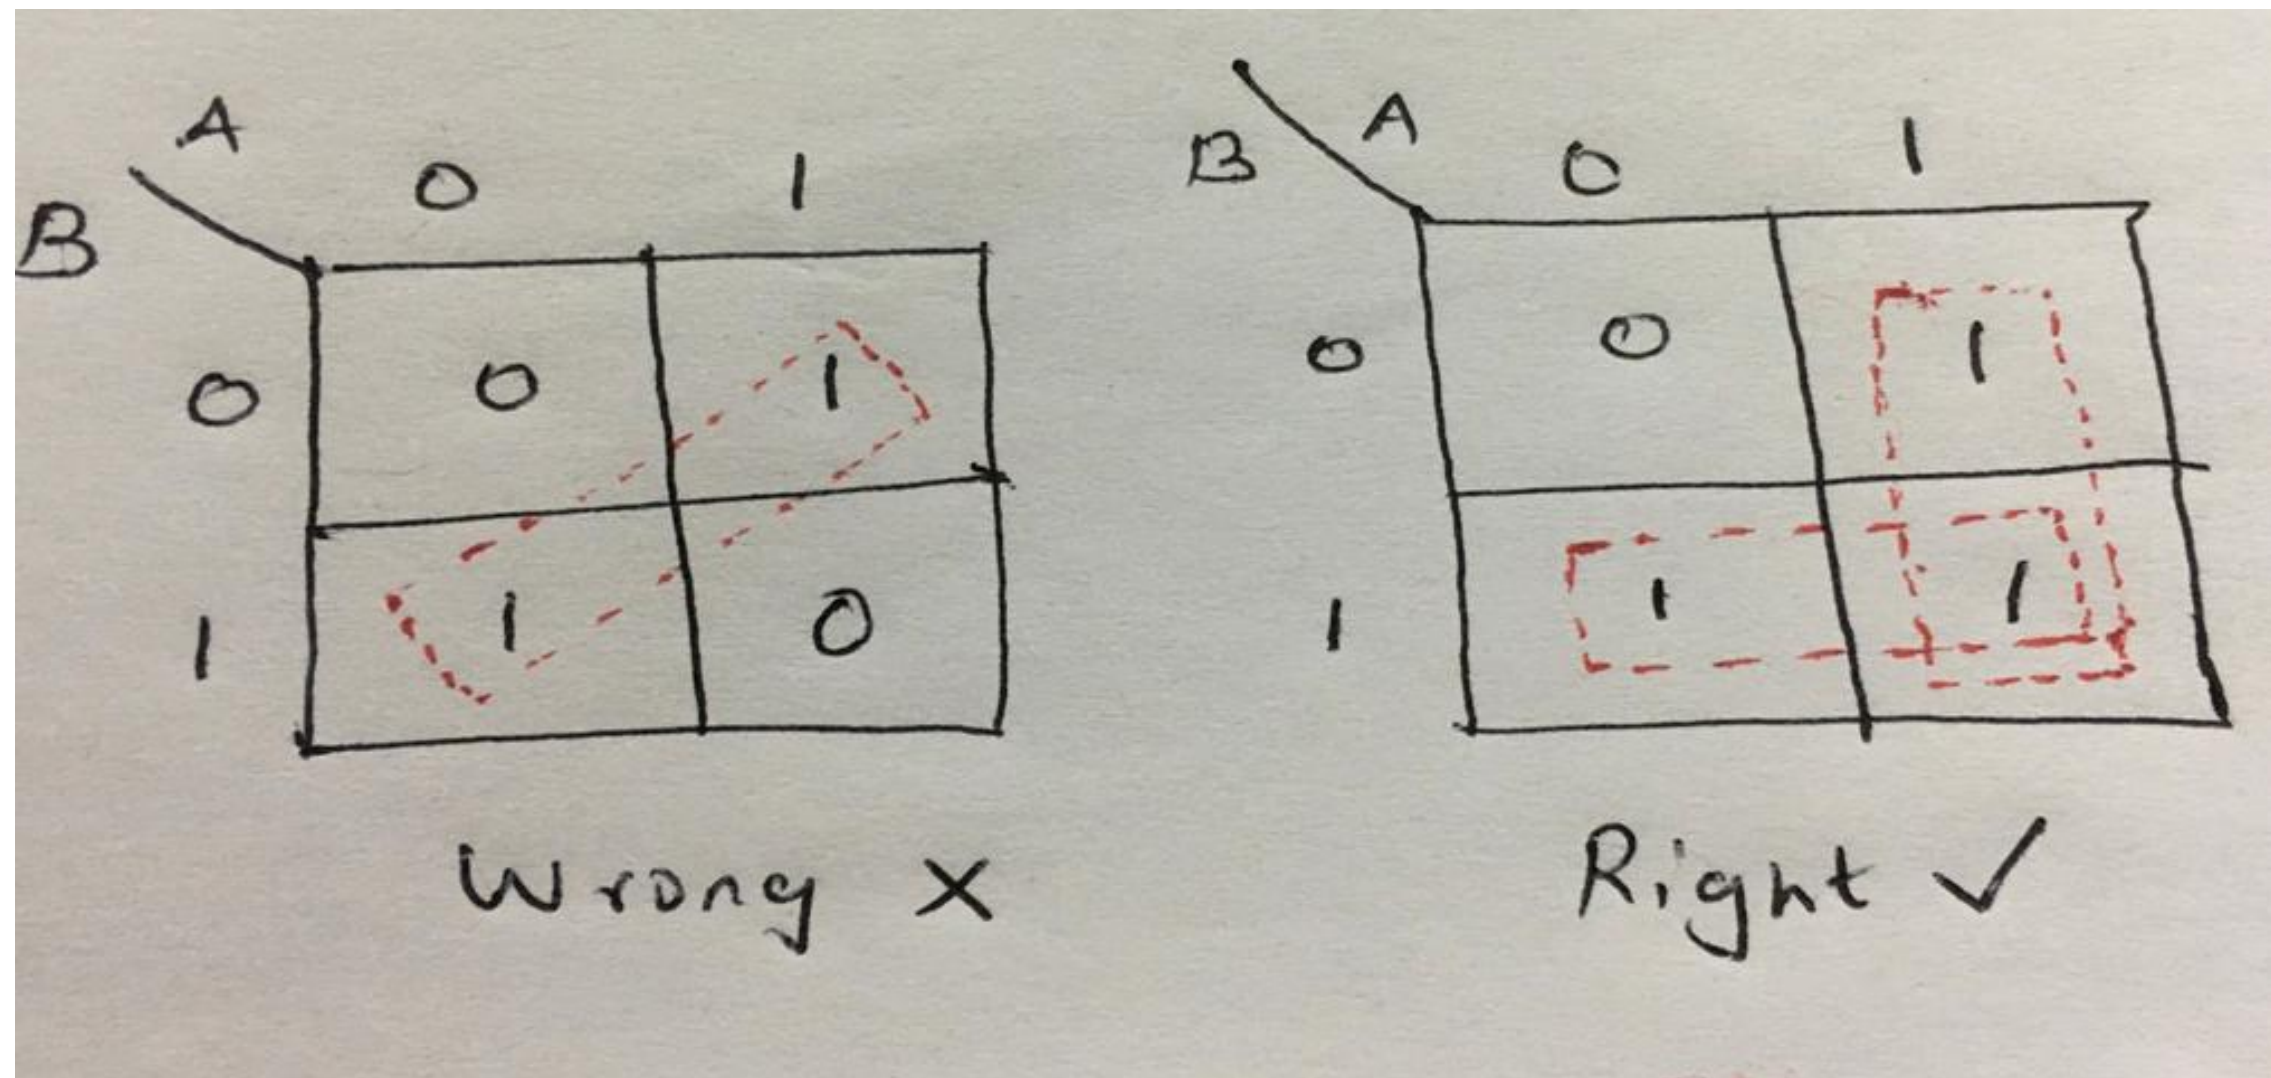 A
B 0 1
0 0 1
1 1 0
Wrong X
A
B 0 1
0 0 1
1 1 1
Right ✓